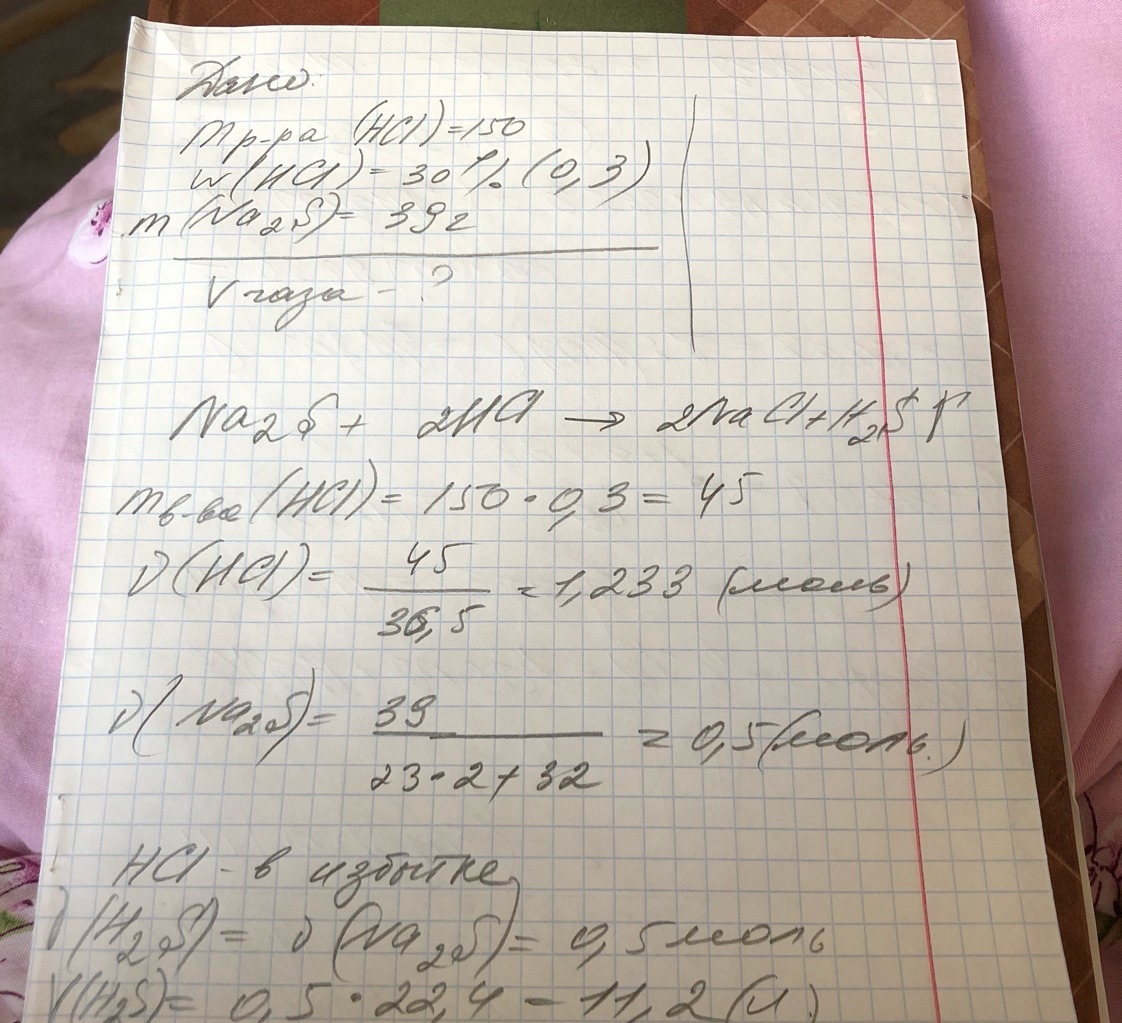 Дано:
m р-ра (HCl) = 150
w (HCl) = 30 % (0,3)
m (Na₂S) = 39 г
V газа - ?
Na₂S + 2HCl → 2NaCl + H₂S ↑
m в-ва (HCl) = 150 · 0,3 = 45
ν (HCl) = 45 / 36,5 = 1,233 (моль)
ν (Na₂S) = 39 / 23 · 2 + 32 = 0,5 (моль.)
HCl - в избытке,
ν (H₂S) = ν (Na₂S) = 0,5 моль
V (H₂S) = 0,5 · 22,4 = 11,2 (л)